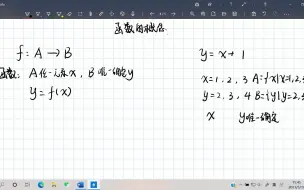 函数的概念
f: A → B
函数: A任一元素x, B唯一确定y
y = f(x)
y = x + 1
x = 1, 2, 3 A = {x|x=1,2,3
y = 2, 3, 4 B = {y|y=2,3
x y唯一确定